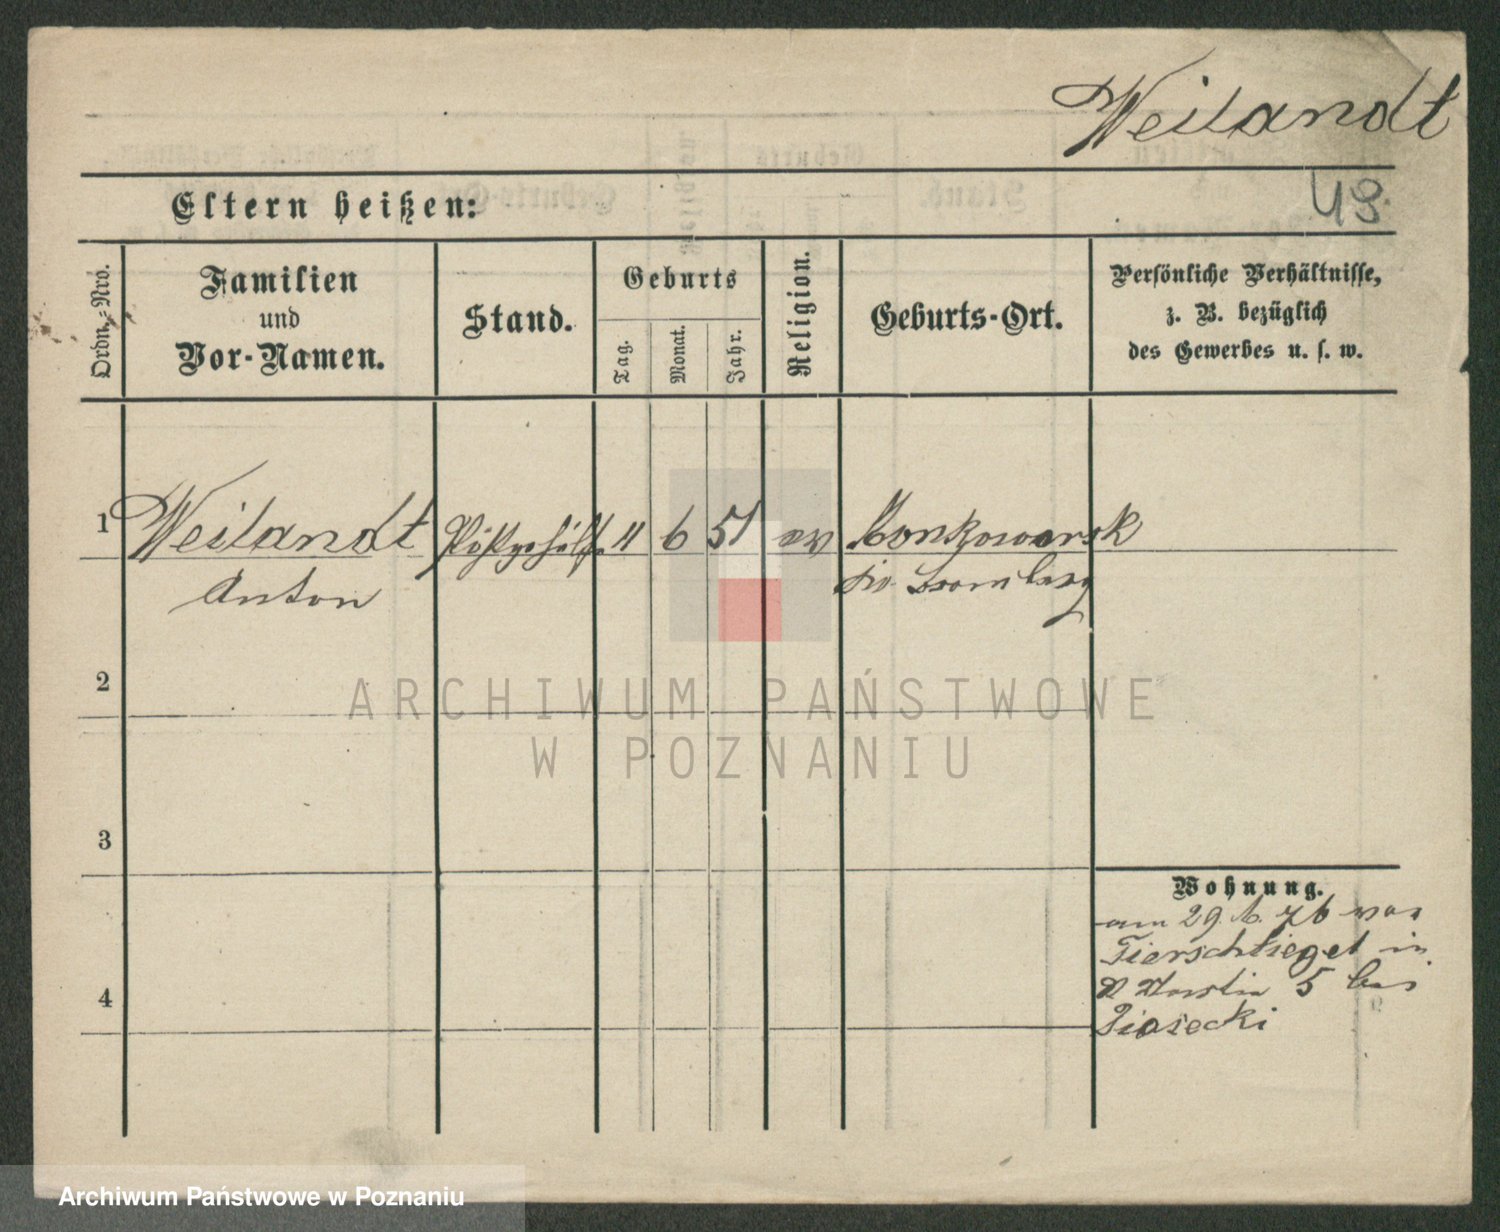 Weilandt
49
Eltern heißen:
Ordn.-Nro.
Familien
und
Vor-Namen.
Stand.
Geburts
Tag.
Monat.
Jahr.
Religion.
Geburts-Ort.
Persönliche Verhältnisse,
z. B. bezüglich
des Gewerbes u. s. w.
1 Weilandt 11 6 51 ev
Anton
Bromberg
2
ARCHIWUM PAŃSTWOWE
W POZNANIU
3
Wohnung.
am 29. 6. 76 von
Tierschtiegel in
St Martin 5 bei
Piasecki
4
Archiwum Państwowe w Poznaniu